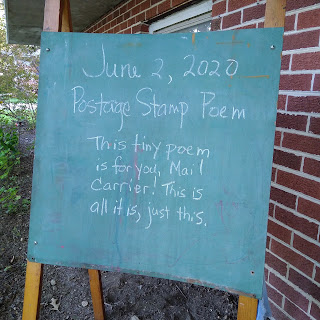 June 2, 2020
Postage Stamp Poem
This tiny poem
is for you, Mail
Carrier! This is
all it is, just this.